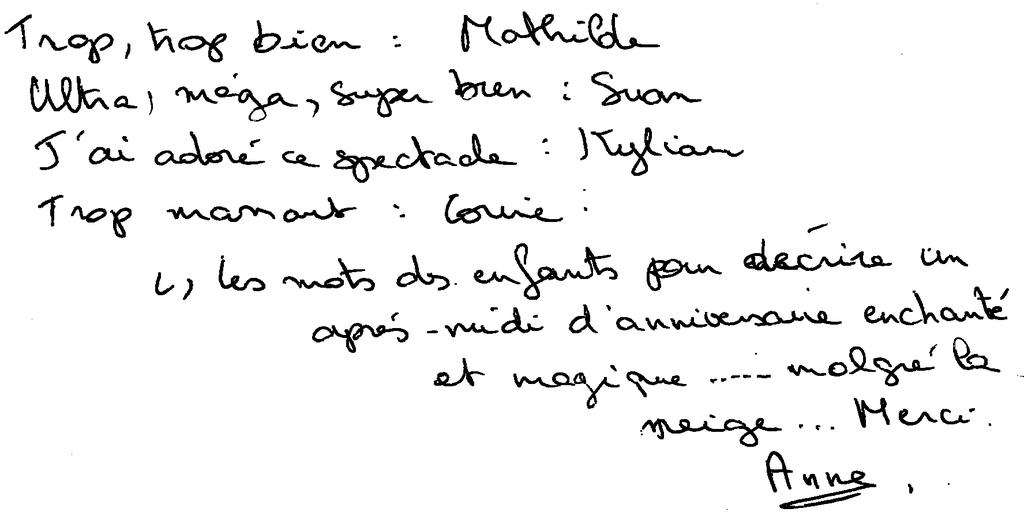 Trop, trop bien : Mathilde
Ultra, méga, super bien : Suan
J'ai adoré ce spectacle : Kylian
Trop marrant :
↳ les mots des enfants pour décrire un
après-midi d'anniversaire enchanté
et magique ..... malgré la
neige... Merci.
Anne